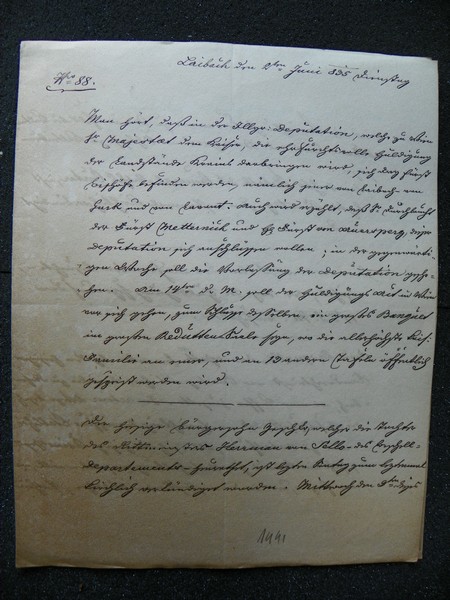 Laibach den 2ten Juni 835 Dienstag
No 88.
Man hört, daß in der Illyr: Deputation, welche zu Wien
Sr Majestaet dem Kaiser, die ehrfurchtsvolle Huldigung
der Landstände Krains darbringen wird, sich drey Fürst
Bischöfe befinden werden, nämlich jener von Laibach von
Gurk und von Lavant. Auch wird erzählt, daß Sr. Durchlaucht
der Fürst Metternich und Fürst von Auersperg, dieser
Deputation sich anschließen wollen; in der gegenwärti-
gen Woche soll die Verlassung der Deputation gesche-
hen. Am 14ten d. M. soll der Huldigungs Act in Wien
vor sich gehen, zum Schluße desselben, ein großes
im großen Redutten Saale seyn, wo die allerhöchste Kais.
Familie an einer, und an 13 andern Tafeln öffentlich
gespeist werden wird.
Der hiesige bürgerssohn welcher die Tochter
des Rittmeisters Herrman von des Beschell-
departements heurathet, ist letzten Sontag zum letztenmal
kirchlich verkündiget worden. Mittwoch den 3ten
1441